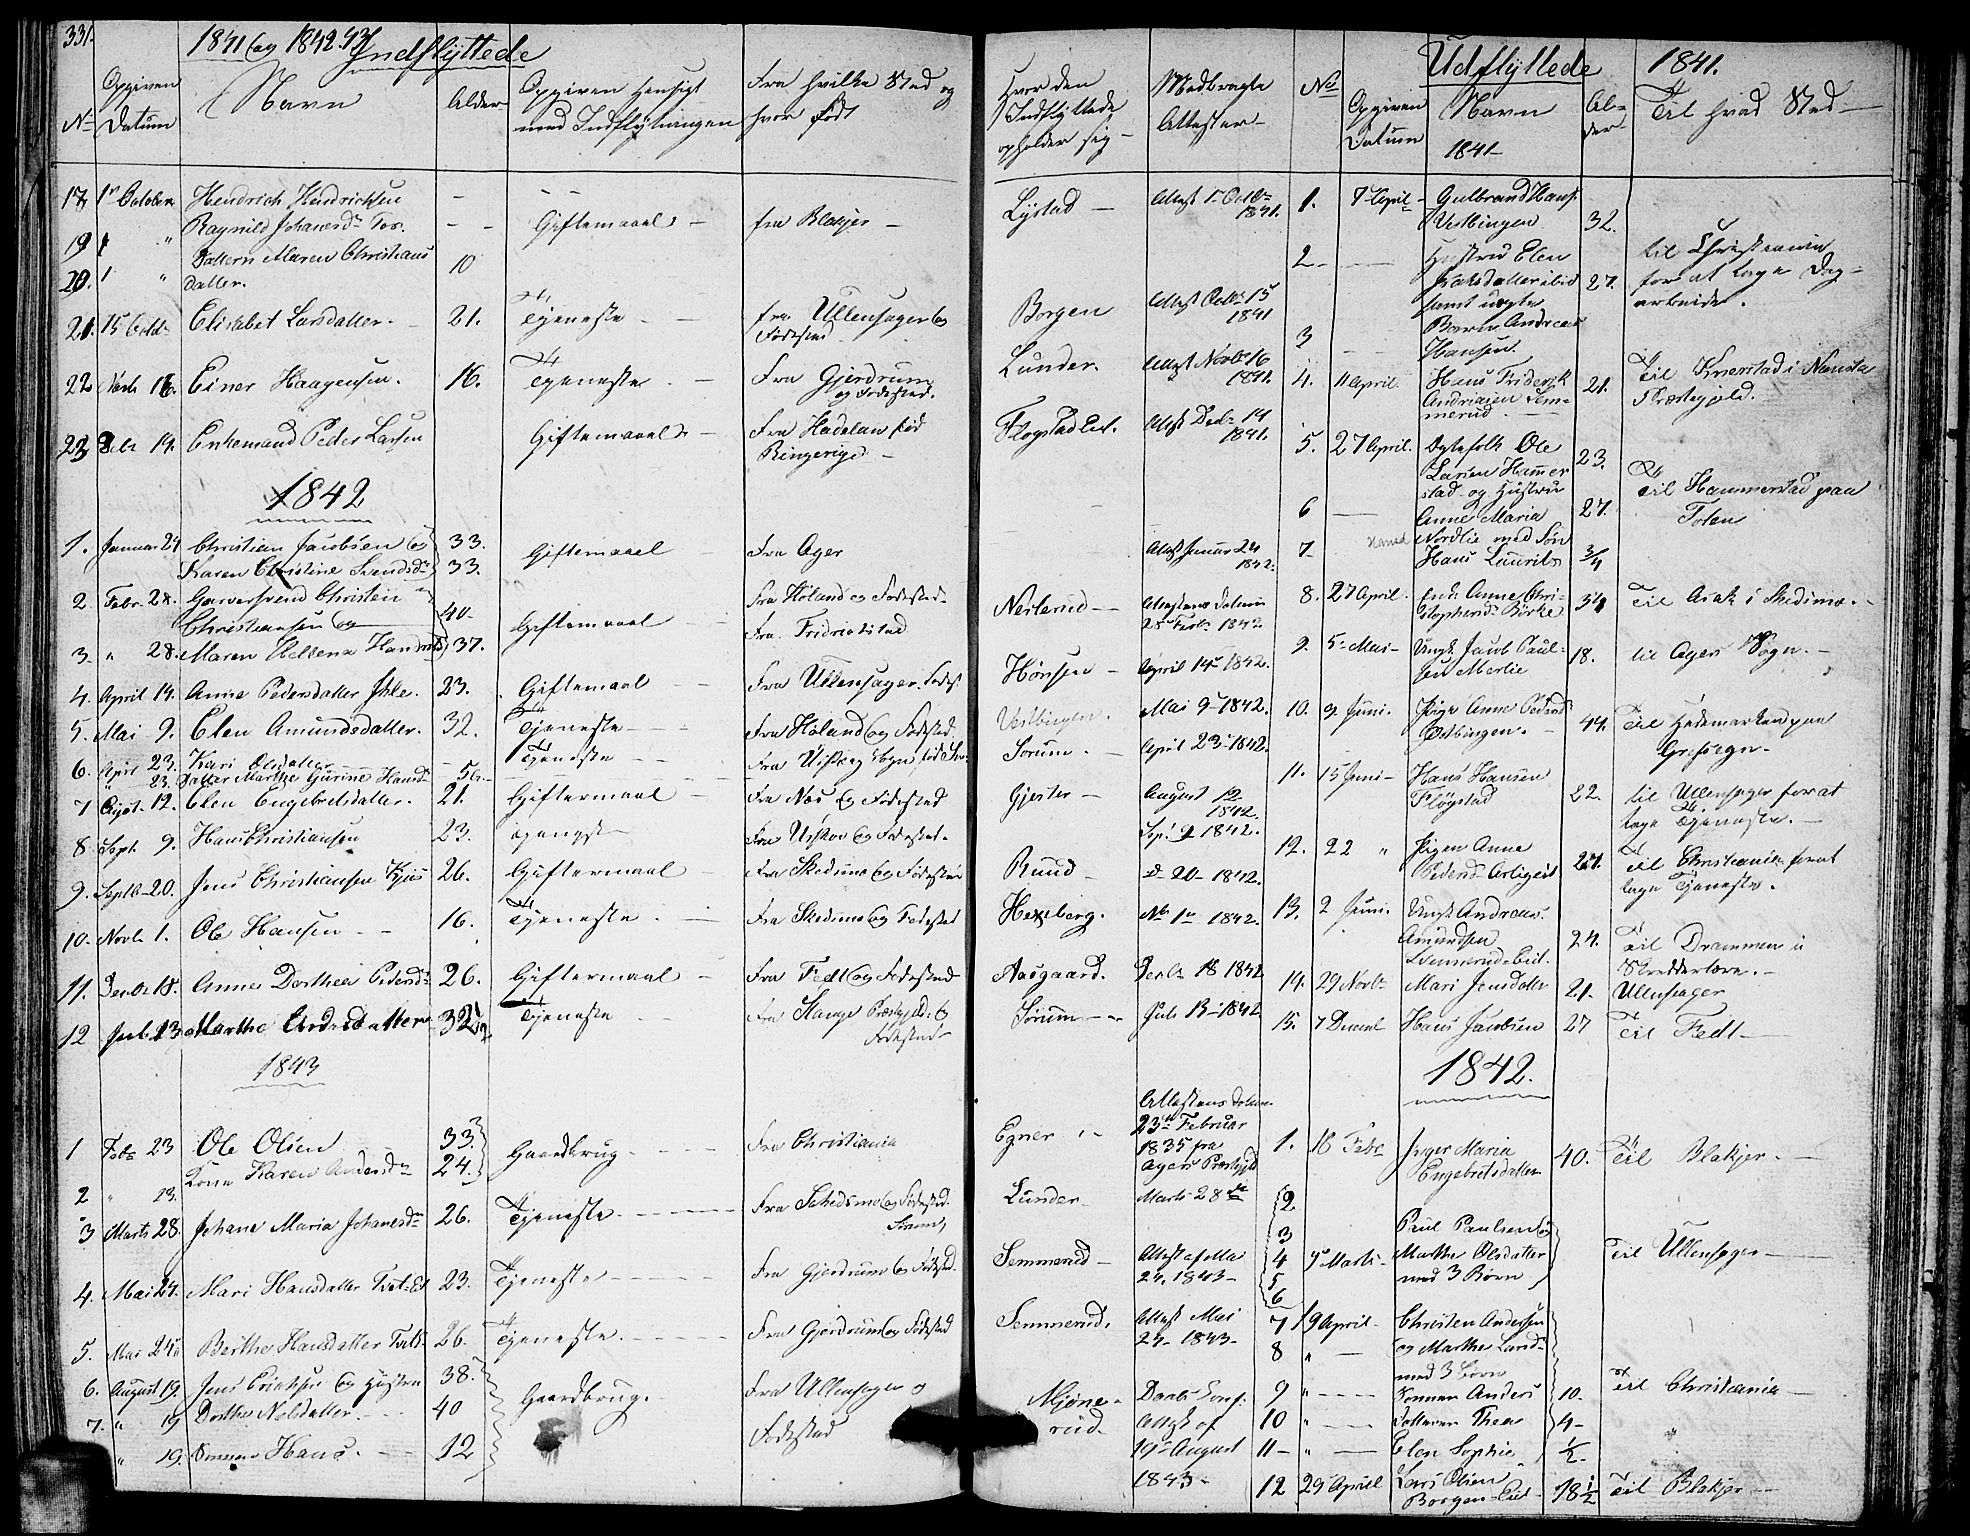 331.
1841 og 1842. 43 Indflyttede
No
Opgiven Datum
Navn
Alder
Opgiven Hensigt med Indflytningen
Fra hvilke Sted og hvor født
Hvor den Indflyttede opholder sig
Medbragte Attester
18 1 October Hendrich Hendrichsen - Giftemaal fra Blakjer Lystad Attest 1 Octbr 1841.
19 1 " Ragnild Johanesdr
20. 1 " Datteren Maren Christians datter. 10
21. 15 Octbr Elisabet Larsdatter. 21. Tjeneste fra Ullensager og Fødested Borgen Attest Octbr 15 1841
22 Novbr 16. Einer Haagensen. 16. Tjeneste Fra Gjerdrum og Fødested. Lunder. Attest Novbr 16 1841.
23 Debr 14. Enkemand Peder Larsen Giftemaal Fra Hadelan fød Ringerige Flogstad Eet. Attest Debr 14 1841.
1842
1. Januar 24 Christian Jacobsen og 33. Giftemaal Fra Ager Attest Januar 24 1842.
Karen Christine Svendsdr 33.
2. Febr. 28. Garversvend Christen Christiansen og 40. Giftemaal Fra Høland og Fødested. Nerlerud Attestens Datum 28 Febr 1842
3. " 28. Maren Hellena 37. Fra Fridrichstad
4. April 14. Anne Pedersdatter Ihle. 23. Giftemaal Fra Ullensager Fødest Hønsen April 14 1842.
5. Mai 9. Elen Amundsdatter. 32. Tjeneste Fra Høland og Fødested Vestbingen. Mai 9 1842.
6. April 23. Kari Olsdatter Tjeneste Sørum April 23 1842.
" 23. Datter Marthe Gurine Hansdr
7 Augst. 12. Elen Engebretsdatter. 21. Giftermaal Fra Næs og Fødested Gjester August 12 1842.
8 Sept. 9. Hans Christiansen 23. Fra Urskov og Fødested. Sept. 9 1842.
9. Septbr 20. Jens Christiansen 26. Giftermaal Fra Skedsmo og Fødested Ruud d 20 1842.
10. Novbr 1. Ole Hansen 16. Tjeneste Fra Skedsmo og Fødested Hexeberg. Nb 1 1842.
11. Decbr 18. Anne Dorthea Pedersdr 26. Giftermaal Fra Fedt og Fødested Aasgaard. Decbr 18 1842
12 Juli 13 Marthe Andersdatter 32 1/2 Tjeneste fra Stange Præstegjeld og Fødested Sørum Juli 13 1842
1843
1 Febr 23 Ole Olsen 33. Gaardbrug Fra Christiania Egner Attestens datum 23de Februar 1835 fra Agers Præstgjld
2 " 23. Kone Karen Andersdr 24.
3 Marts 28. Johane Maria Johanesdr 26. Tjeneste Fra Schedsmo og Fødested Sørum Lunder Marts 28de
4. Mai 24. Mari Hansdatter Tvet-Ed 23. Tjeneste Fra Gjerdrum og Fødested. Semmerud Attest af Mai 24, 1843
5. Mai 24 Berthe Hansdatter 26. Tjeneste. Fra Gjerdrum og Fødested Semmerud. Attest Mai 24 1843
6. August 19. Jens Erichsen og Hustru 38. Gaardbrug. Fra Ullensager og Fødested Mjønerud. Attest af 19 August 1843
7. " 19 Dorthe Nelsdatter. 40
" 19. Sønnen Hans. 12
Udflyttede 1841.
No
Opgiven Datum
Navn
Alder
Til hvad Sted
1841
1. 7 April Gulbrand Hans. Vestbingen 32. til Christiania for at tage Dagarbeide.
2 Hustru Elen Isaksdatter ibid 27.
samt uægte
3 Barn Andreas Hansen.
4. 11 April. Hans Friderik Andriasen Semmerud 21. Til Præstegjeld.
5. 27 April. Ægtefolk Ole Larsen Hammerstad og Hustru 23. Til Hammerstad paa Toten
6 Anne Maria 27.
7 Nordlie med Søn Hans Laurits 3/4
8. 27 April. Enke Anne Christophersdr Børke 34 Til Asak i Skedsmo.
9. 5 Mai Ungk. Jacob Paulsen Merlie 18. til Ager Sogn.
10. 9 Juni. Pige Anne Pedersdr Østbingen. 44. Til Hedemarken paa
11. 15 Juni Hans Hansen Fløgstad 22. til Ullensager forat tage Tjeneste.
12. 22 " Pigen Anne Pedersdr 27. Til Christiania forat tage Tjeneste.
13. 2 Juni. Ungk Andreas Amundsen 24. Til Drammen i Skrædderlære.
14. 29 Novbr Mari Jensdatter 21. Ullensager
15. 7 Decembr Hans Jacobsen 27 Til Fedt
1842.
1. 18 Febr Inger Maria Engebretsdatter 40. Til Blakjer.
2
3 Paul Paulsen og
4 7 Marts Marthe Olsdatter Til Ullensager
5 med 3 Børn
6
7 19 April Christen Andersen
8 " og Marthe Larsdr
med 3 Børn
9 " Sønnen Anders 10. Til Christiania
10 " Datteren Thea 4
11 " Elen Sophie 1/2
12 29 April Lars Olsen Borgen-Eiet 18 1/2 Til Blakjer